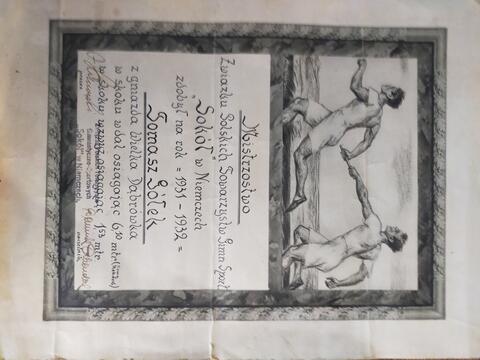 Mistrzostwo
Związku Polskich Towarzystw Gimn. Sport.
"Sokół" w Niemczech
zdobył na rok = 1931 - 1932 =
Tomasz Gółek
z gniazda Wielka Dąbrówka
w skoku wdal osiągając 6.10 mtr.
w skoku wzwyż osiągając 1.53 mtr.
"Sokół" w Niemczech
prezes
naczelnik